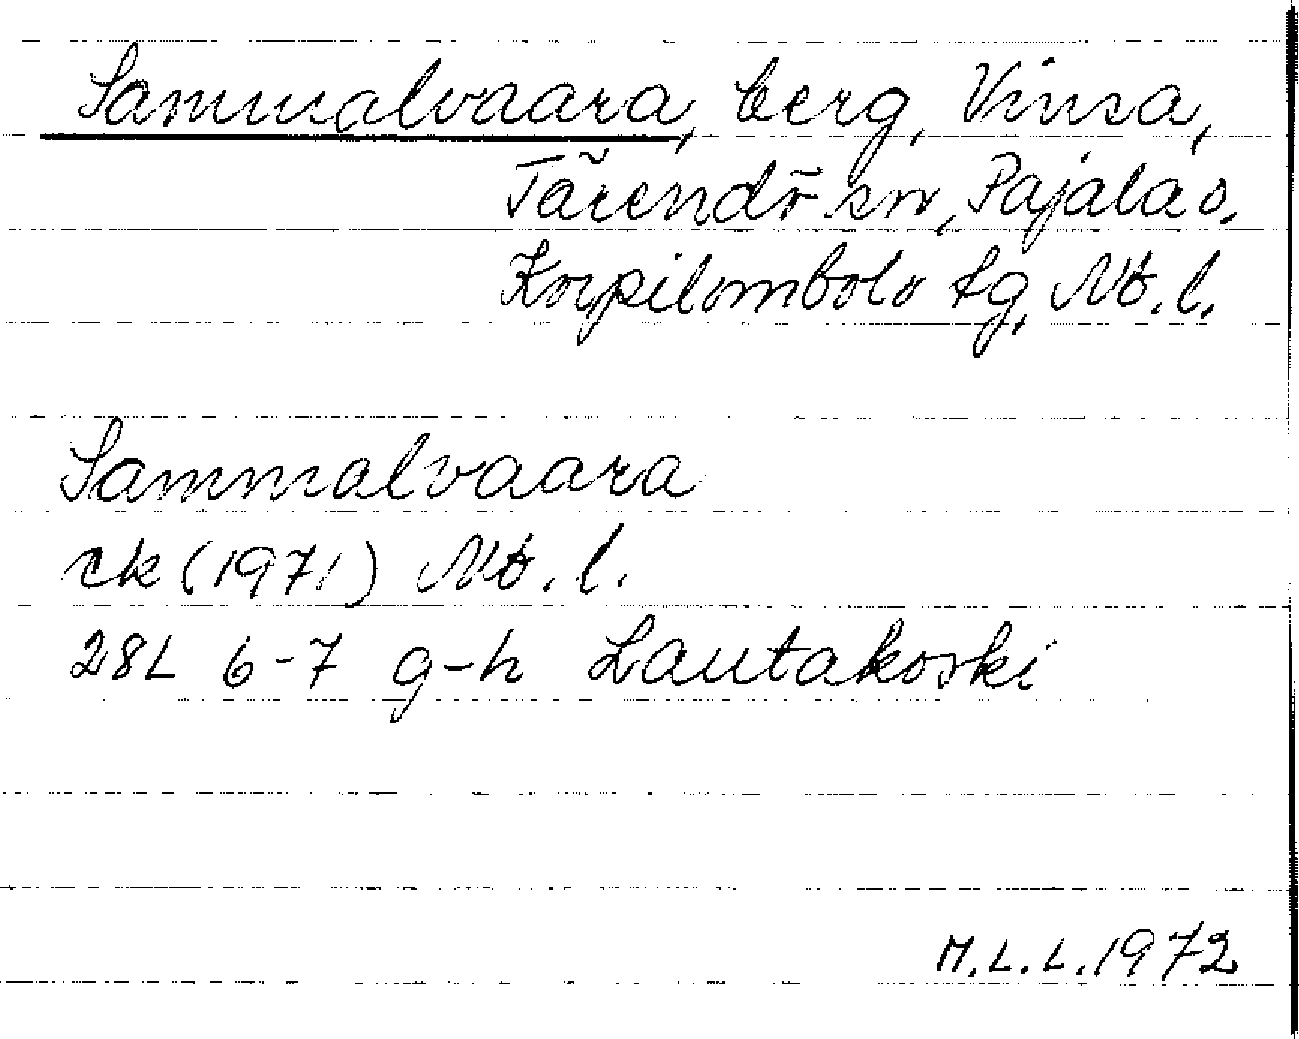 Sammalvaara, berg, Vinsa,
Tärendö sn, Pajala o.
Korpilombolo tg, Nb. l.
Sammalvaara
ek (1971) Nb. l.
28L 6-7 g-h Lautakoski
M.L.L. 1972